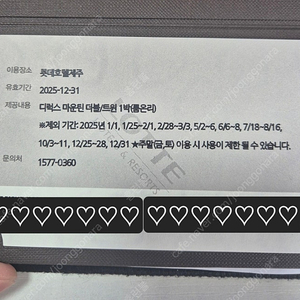 이용장소 롯데호텔제주
유효기간 2025-12-31
제공내용 디럭스 마운틴 더블/트윈 1박(룸온리)
※제외 기간: 2025년 1/1, 1/25~2/1, 2/28~3/3, 5/2~6, 6/6~8, 7/18~8/16,
10/3~11, 12/25~28, 12/31 ★주말(금,토) 이용 시 사용이 제한 될 수 있습니다.
문의처 1577-0360